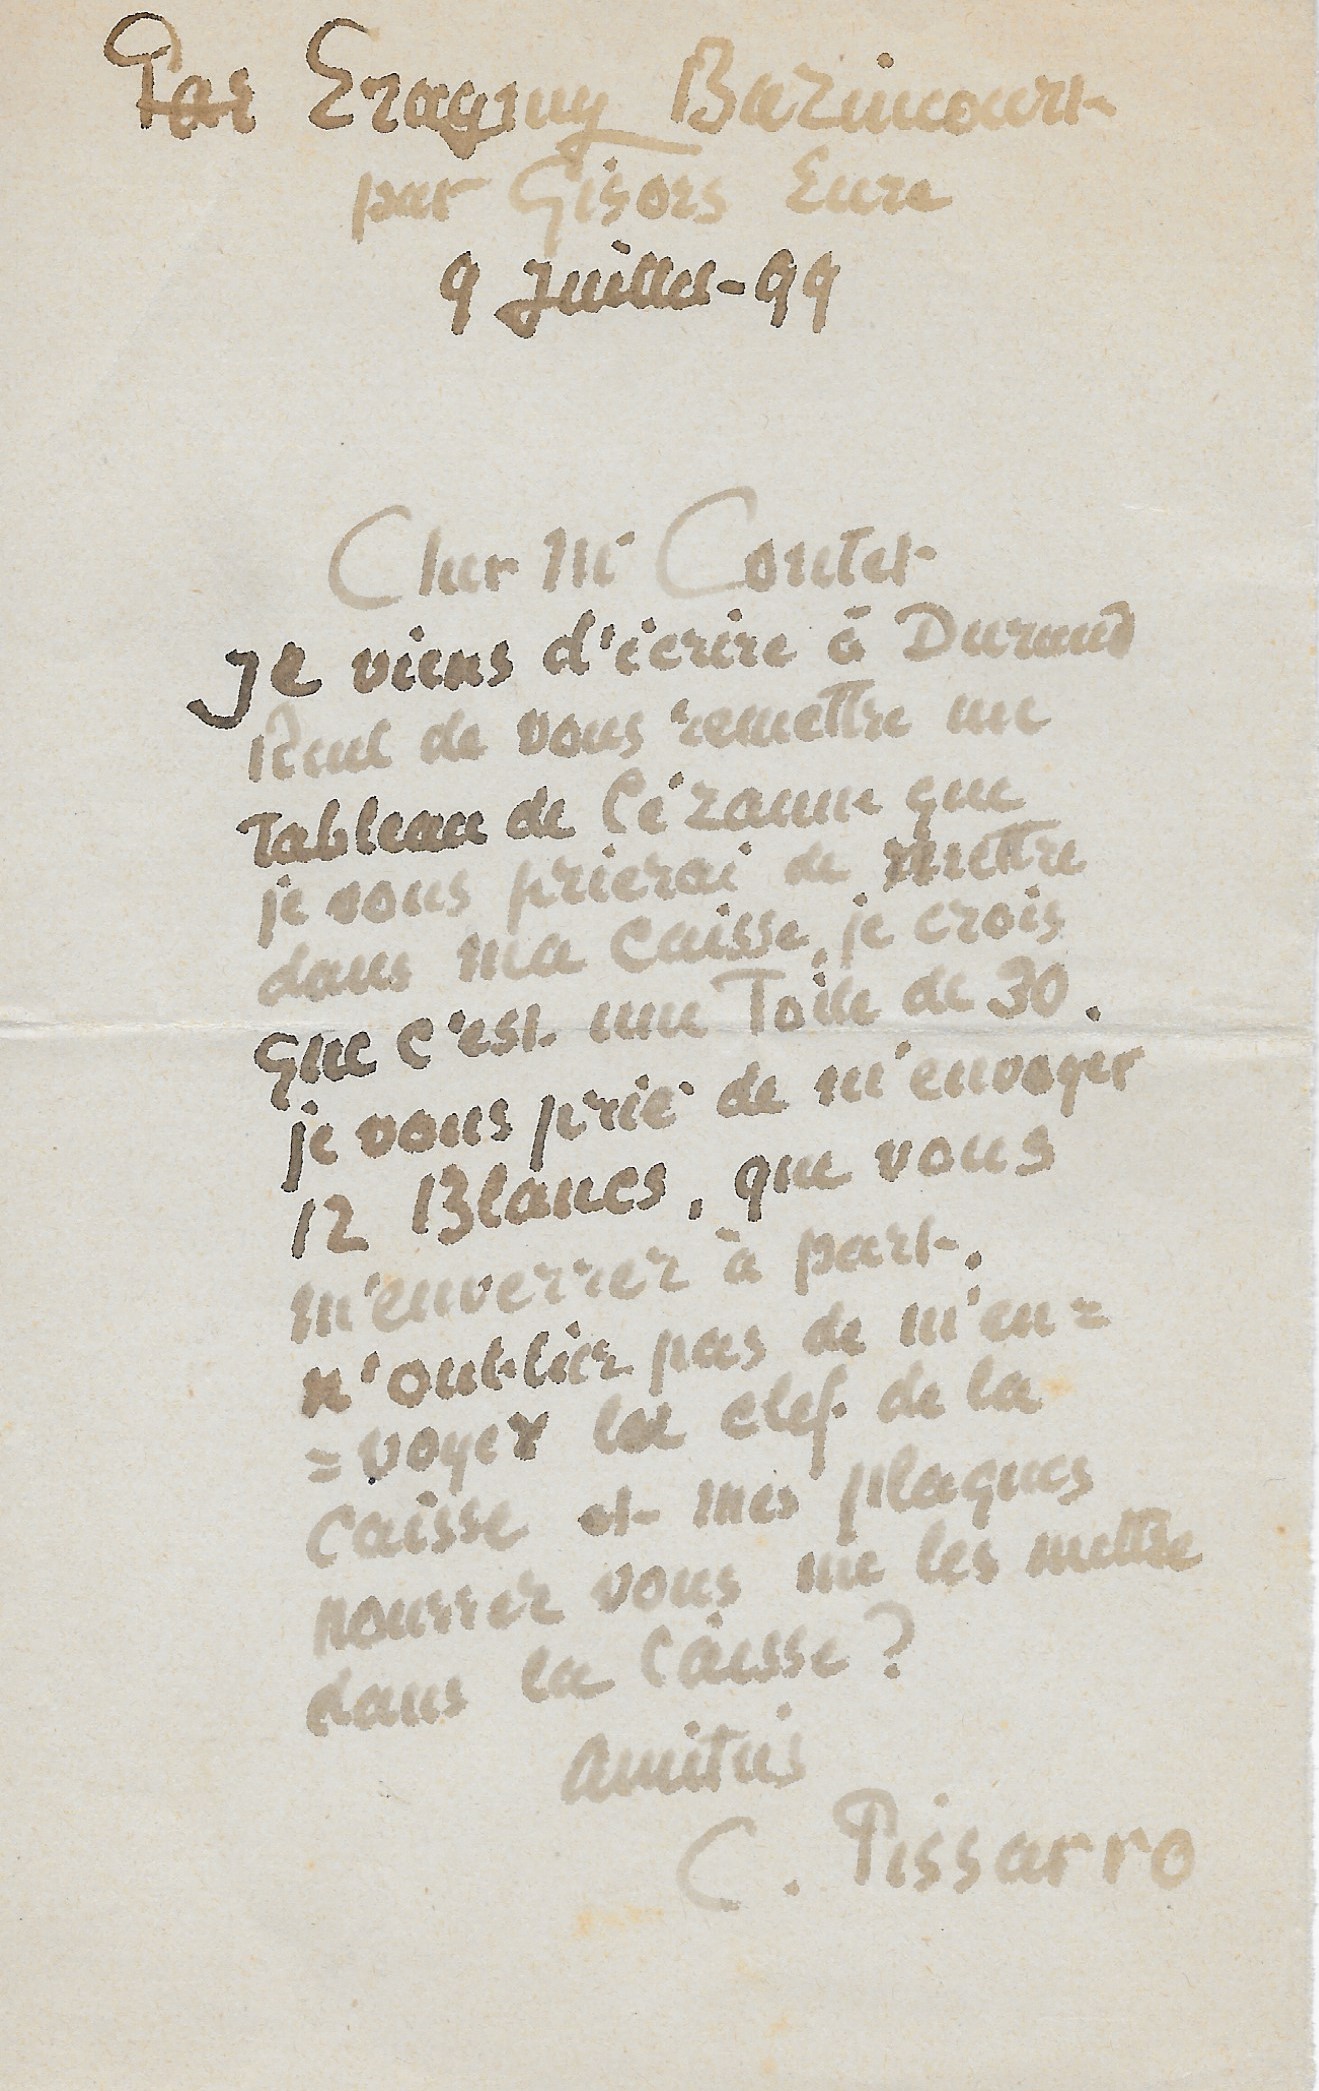 Par Eragny Bazincourt
par Gisors Eure
9 Juillet - 99
Cher Mr Contet
Je viens d'écrire à Durand
Ruel de vous remettre un
Tableau de Cézanne que
je vous prierai de mettre
dans ma Caisse, je crois
que c'est une Toile de 30.
je vous prie de m'envoyer
12 Blancs, que vous
m'enverrez à part.
n'oubliez pas de m'en=
=voyer la clef de la
Caisse et mes plaques
pourrez vous me les mettre
dans la Caisse ?
amitiés
C. Pissarro